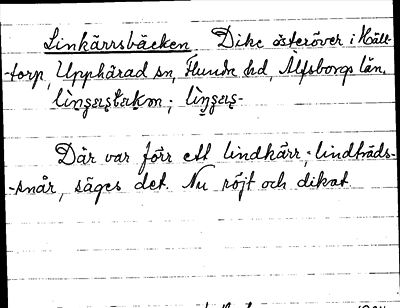 Linkärrsbäcken Dike österöver i Hält-
-torp, Upphärad sn, Flundre hd, Älfsborgs län.
Där var förr ett lindkärr, lindträds-
-snår, säges det. Nu röjt och dikat